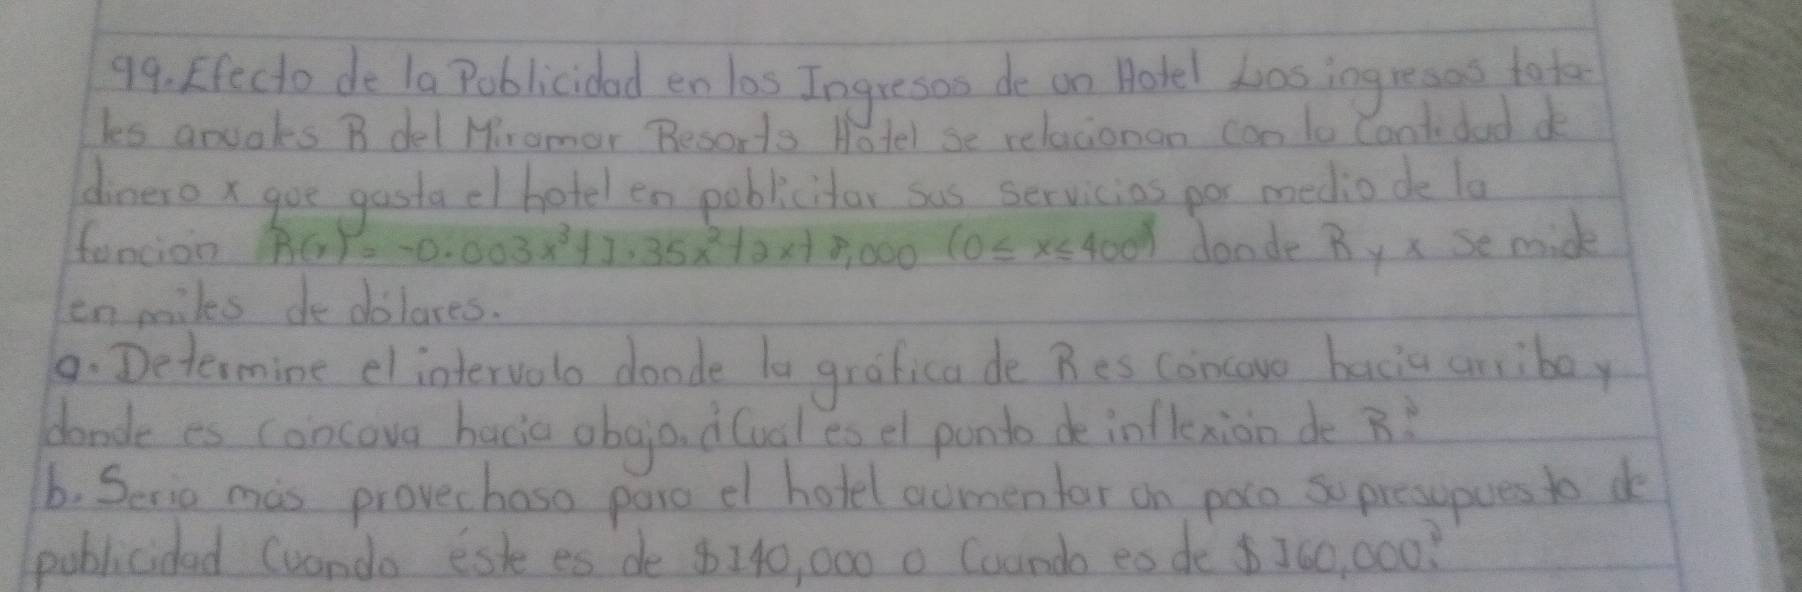 99. Efecto de la Poblicidad en los Ingresos de un Hotel Los ingresos tota-
les anuales R del Miramar Resorts Hotel se relacionan con la Cantidad de
dinero x que gasta el hotel en poblicitar sus servicios por medio de la
funcion R(x) = -0.003x³+1.35x²+2x+8,000 (0≤ x≤400) donde R y x se mide
en miles de dólares.
a. Determine el intervalo donde la gráfica de R es concavo hacia arriba y
donde es concava hacia abajo. ¿Cual es el punto de inflexión de R?
b. Seria más provechoso para el hotel aumentar un poco su presupuesto de
publicidad Cuando éste es de $140,000 o Cuando es de $160,000?